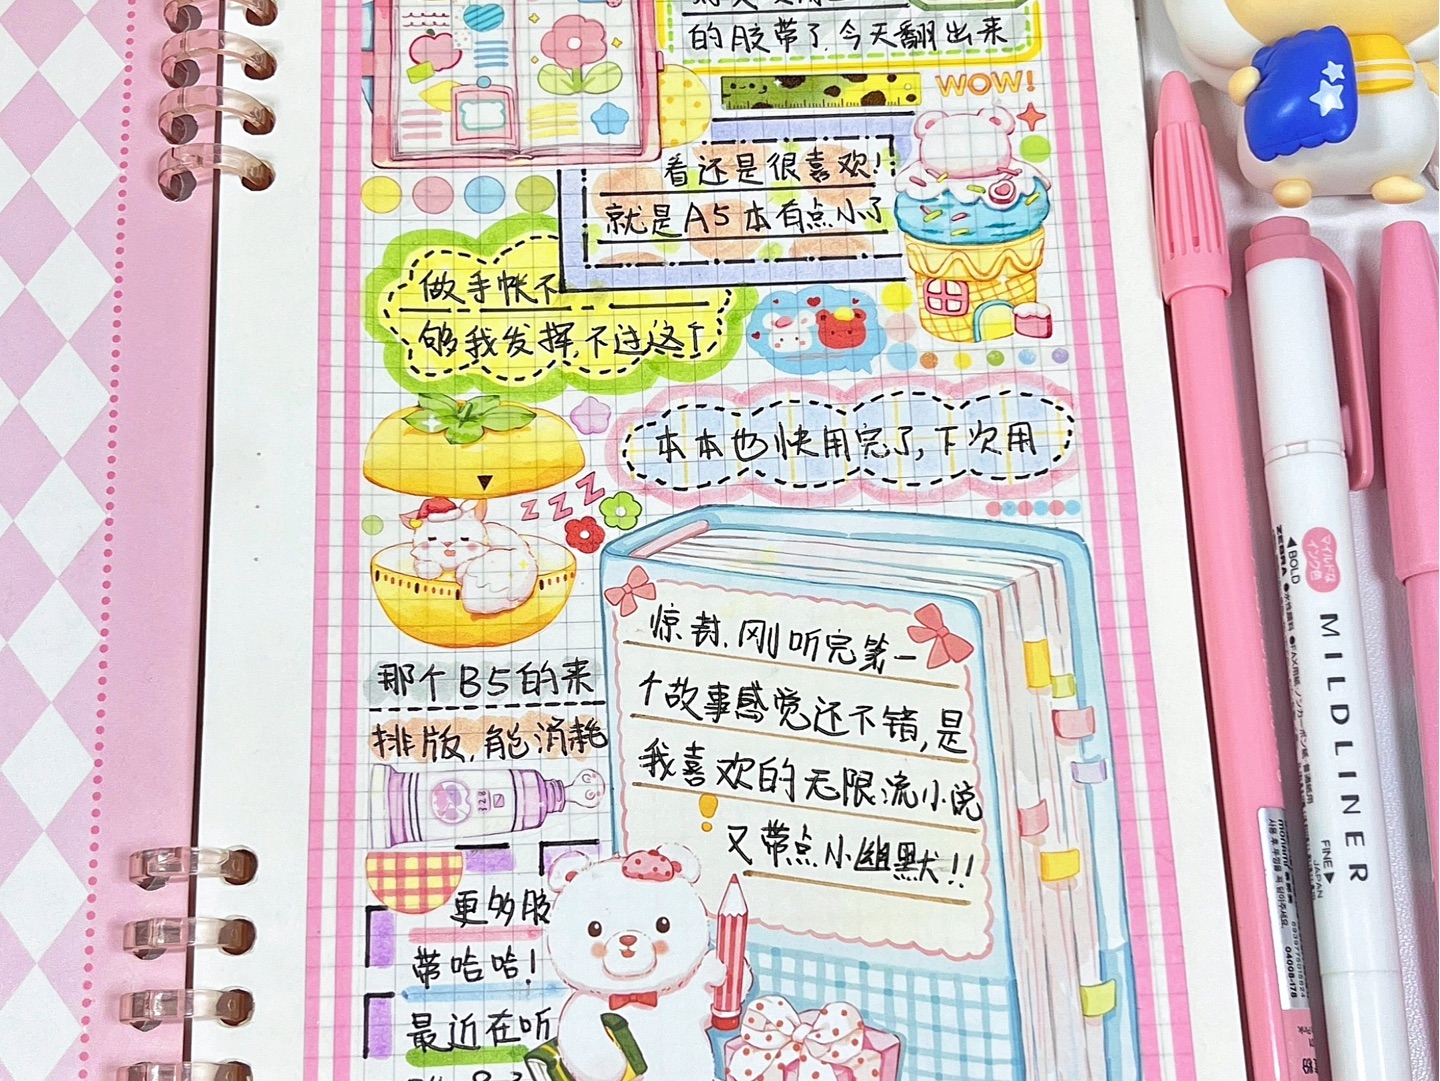 的胶带了,今天翻出来
WOW!
看还是很喜欢!!
就是A5本有点小了
做手帐不
够我发挥,不过这个
本本也快用完了,下次用
ZZZ
那个B5的来
排版,能消耗
更多胶
带哈哈!
最近在听
惊封,刚听完第一
个故事感觉还不错,是
我喜欢的无限流小说
又带点小幽默!!
◀BOLD
マイルドな
インク色
ZEBRA
MILDLINER
FINE▶
JAPAN
monami
04008-178